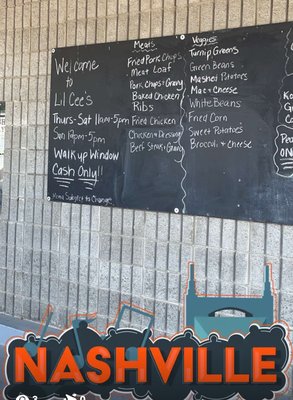 Welcome
to
Lil Cee's
Thurs-Sat 11am-5pm
Sun 12pm-5pm
Walk up Window
Cash Only!!
Menu Subject to Change
Meats
Fried Pork Chops
Meat Loaf
Pork Chops + Gravy
Baked Chicken
Ribs
Fried Chicken
Chicken + Dressing
Beef Steaks + Gravy
Veggies
Turnip Greens
Green Beans
Mashed Potatoes
Mac + Cheese
White Beans
Fried Corn
Sweet Potatoes
Broccoli + Cheese
NASHVILLE